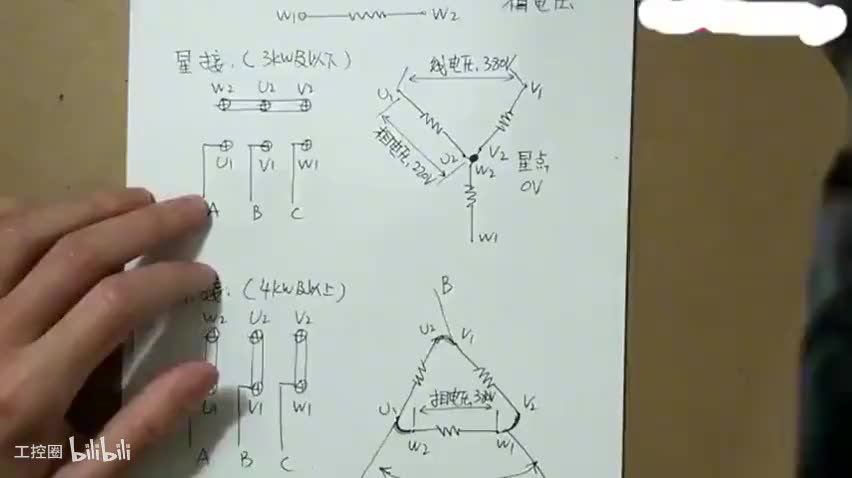 W1 W2
相电压
星接.(3kw及以下)
W2 U2 V2
U1 V1 W1
A B C
线电压,380V
U1 V1
相电压,220V
U2 V2
W2
星点
0V
W1
接.(4kw及以上)
W2 U2 V2
U1 V1 W1
A B C
B
U2 V1
相电压,38
U1 V2
W2 W1
工控圈 bilibili